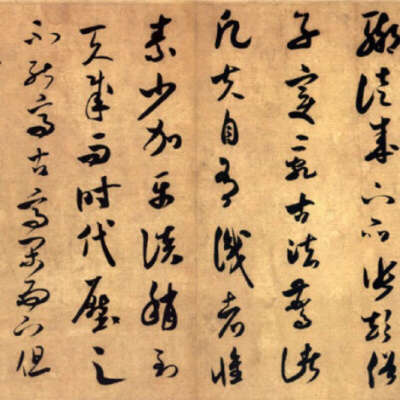 輒徒成下品張顛俗
子變亂古法驚諸
凡夫自有識者懷
素少加平淡稍到
天成而時代壓之
不能高古高閑而下但